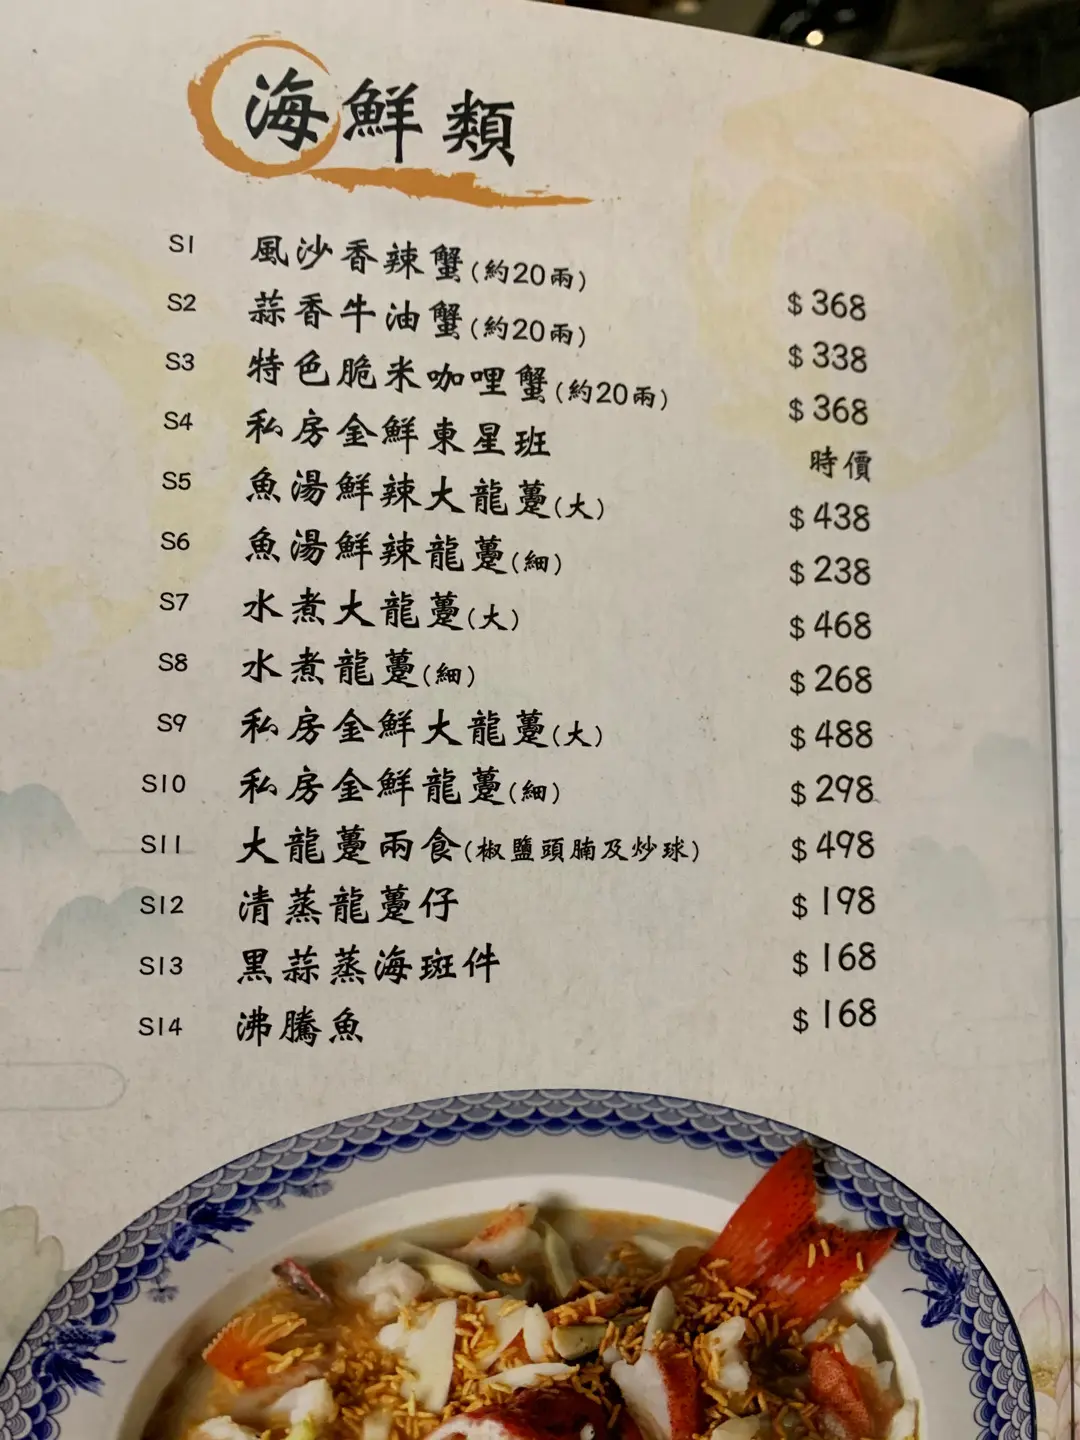 海鮮類
S1 風沙香辣蟹(約20兩) $368
S2 蒜香牛油蟹(約20兩) $338
S3 特色脆米咖喱蟹(約20兩) $368
S4 私房金鮮東星班 時價
S5 魚湯鮮辣大龍躉(大) $438
S6 魚湯鮮辣龍躉(細) $238
S7 水煮大龍躉(大) $468
S8 水煮龍躉(細) $268
S9 私房金鮮大龍躉(大) $488
S10 私房金鮮龍躉(細) $298
S11 大龍躉兩食(椒鹽頭腩及炒球) $498
S12 清蒸龍躉仔 $198
S13 黑蒜蒸海斑件 $168
S14 沸騰魚 $168